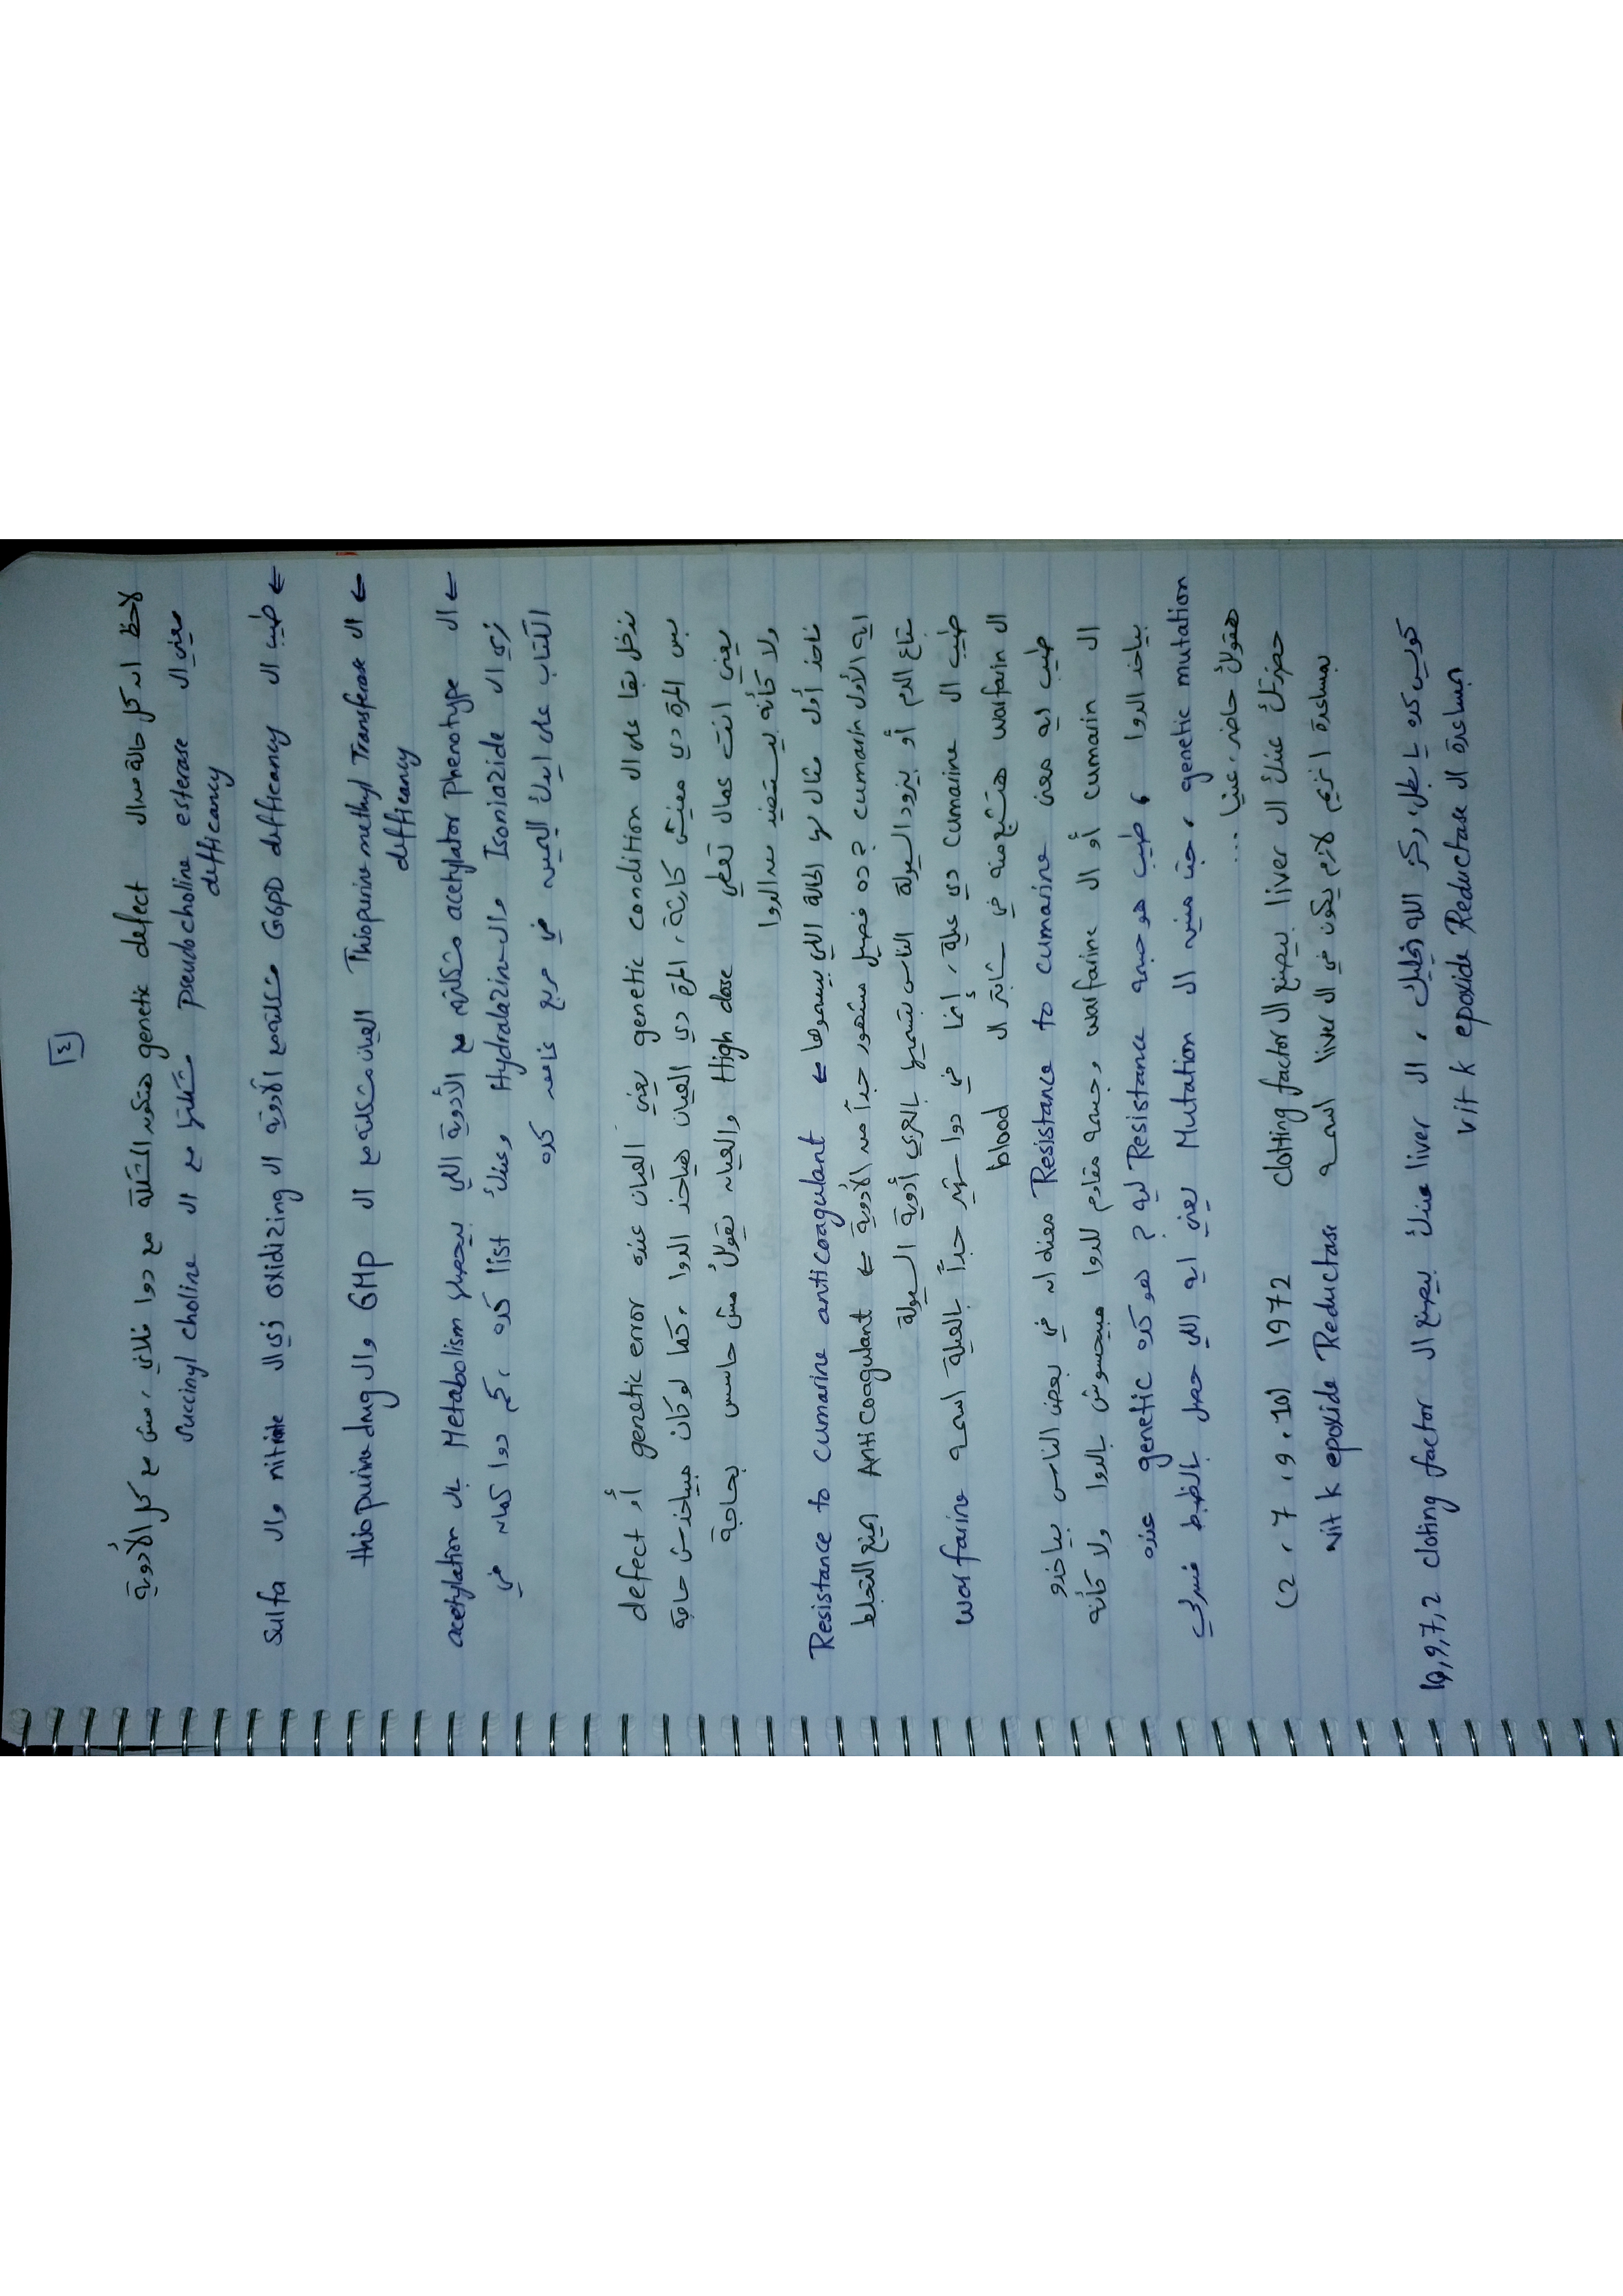 [٤]
لاحظ ان كل حالة من ال genetic defect هتكون المشكلة مع دوا خلاني، مش مع كل الأدوية
يعني ال pseudocholine esterase مشكلتها مع ال succinyl choline
difficancy
← طيب ال G6PD defficancy مشكلته مع الأدوية ال oxidizing زي ال nitrate وال sulfa
← ال Thiopurine methyl Transferase العيان مشكلته مع ال 6MP وال thiopurine drug
defficancy
← ال acetylator phenotype مشكلته مع الأدوية اللي بيحصلها Metabolism بال acetylation
زي ال Isoniazide وال Hydralazine وعندك list كده، كم دوا كمان في
الكتاب على ايدك اليمين في مربع غامق كده
ندخل بقا على ال genetic condition يعني العيان عنده genetic error أو defect
بس المرة دي مفيش كارثة، المرة دي العيان هياخد الدوا، كما لو كان مبياخدش حاجة
يعني انت عمال تعطي High dose والعيان يقولك مش حاسس بحاجة
ولا كأنه بيستفيد من الدوا
ناخد أول مثال لو الحالة اللي بيسموها ← Resistance to cumarine anticoagulant
ايه الأول cumarin ؟ ده فصيل مشهور جداً من الأدوية ← Anticoagulant اتمنع التجلط
بتاع الدم أو بيزود السيولة الناس بتسميها بالعربي أدوية السيولة
طيب ال cumarine دي عيلة، إنما في دوا شهير جداً بالعيلة اسمه warfarine
ال warfarin هتسمع منه في شابتر ال blood
طيب ايه معنى Resistance to cumarine معناه ان في بعض الناس بياخدو
ال cumarin أو ال warfarine وجسمه مقاوم للدوا مبيحسوش بالدوا ولا كأنه
بياخد الدوا، طيب هو جسمه Resistance ليه ؟ هو كده genetic عنده
genetic mutation، جت منين ال Mutation يعني ايه اللي حصل بالظبط فسرلي
هقولك حاضر، عنيا ...
حضرتك عندك ال liver بيصنع ال clotting factor 1972 (2، 7، 9، 10)
بمساعدة انزيم لازم يكون في ال liver اسمه vit k epoxide Reductase
كويس كده يا بطل، ركز الله يخليك، ال liver عندك بيصنع ال cloting factor 10,9,7,2
بمساعدة ال vit k epoxide Reductase